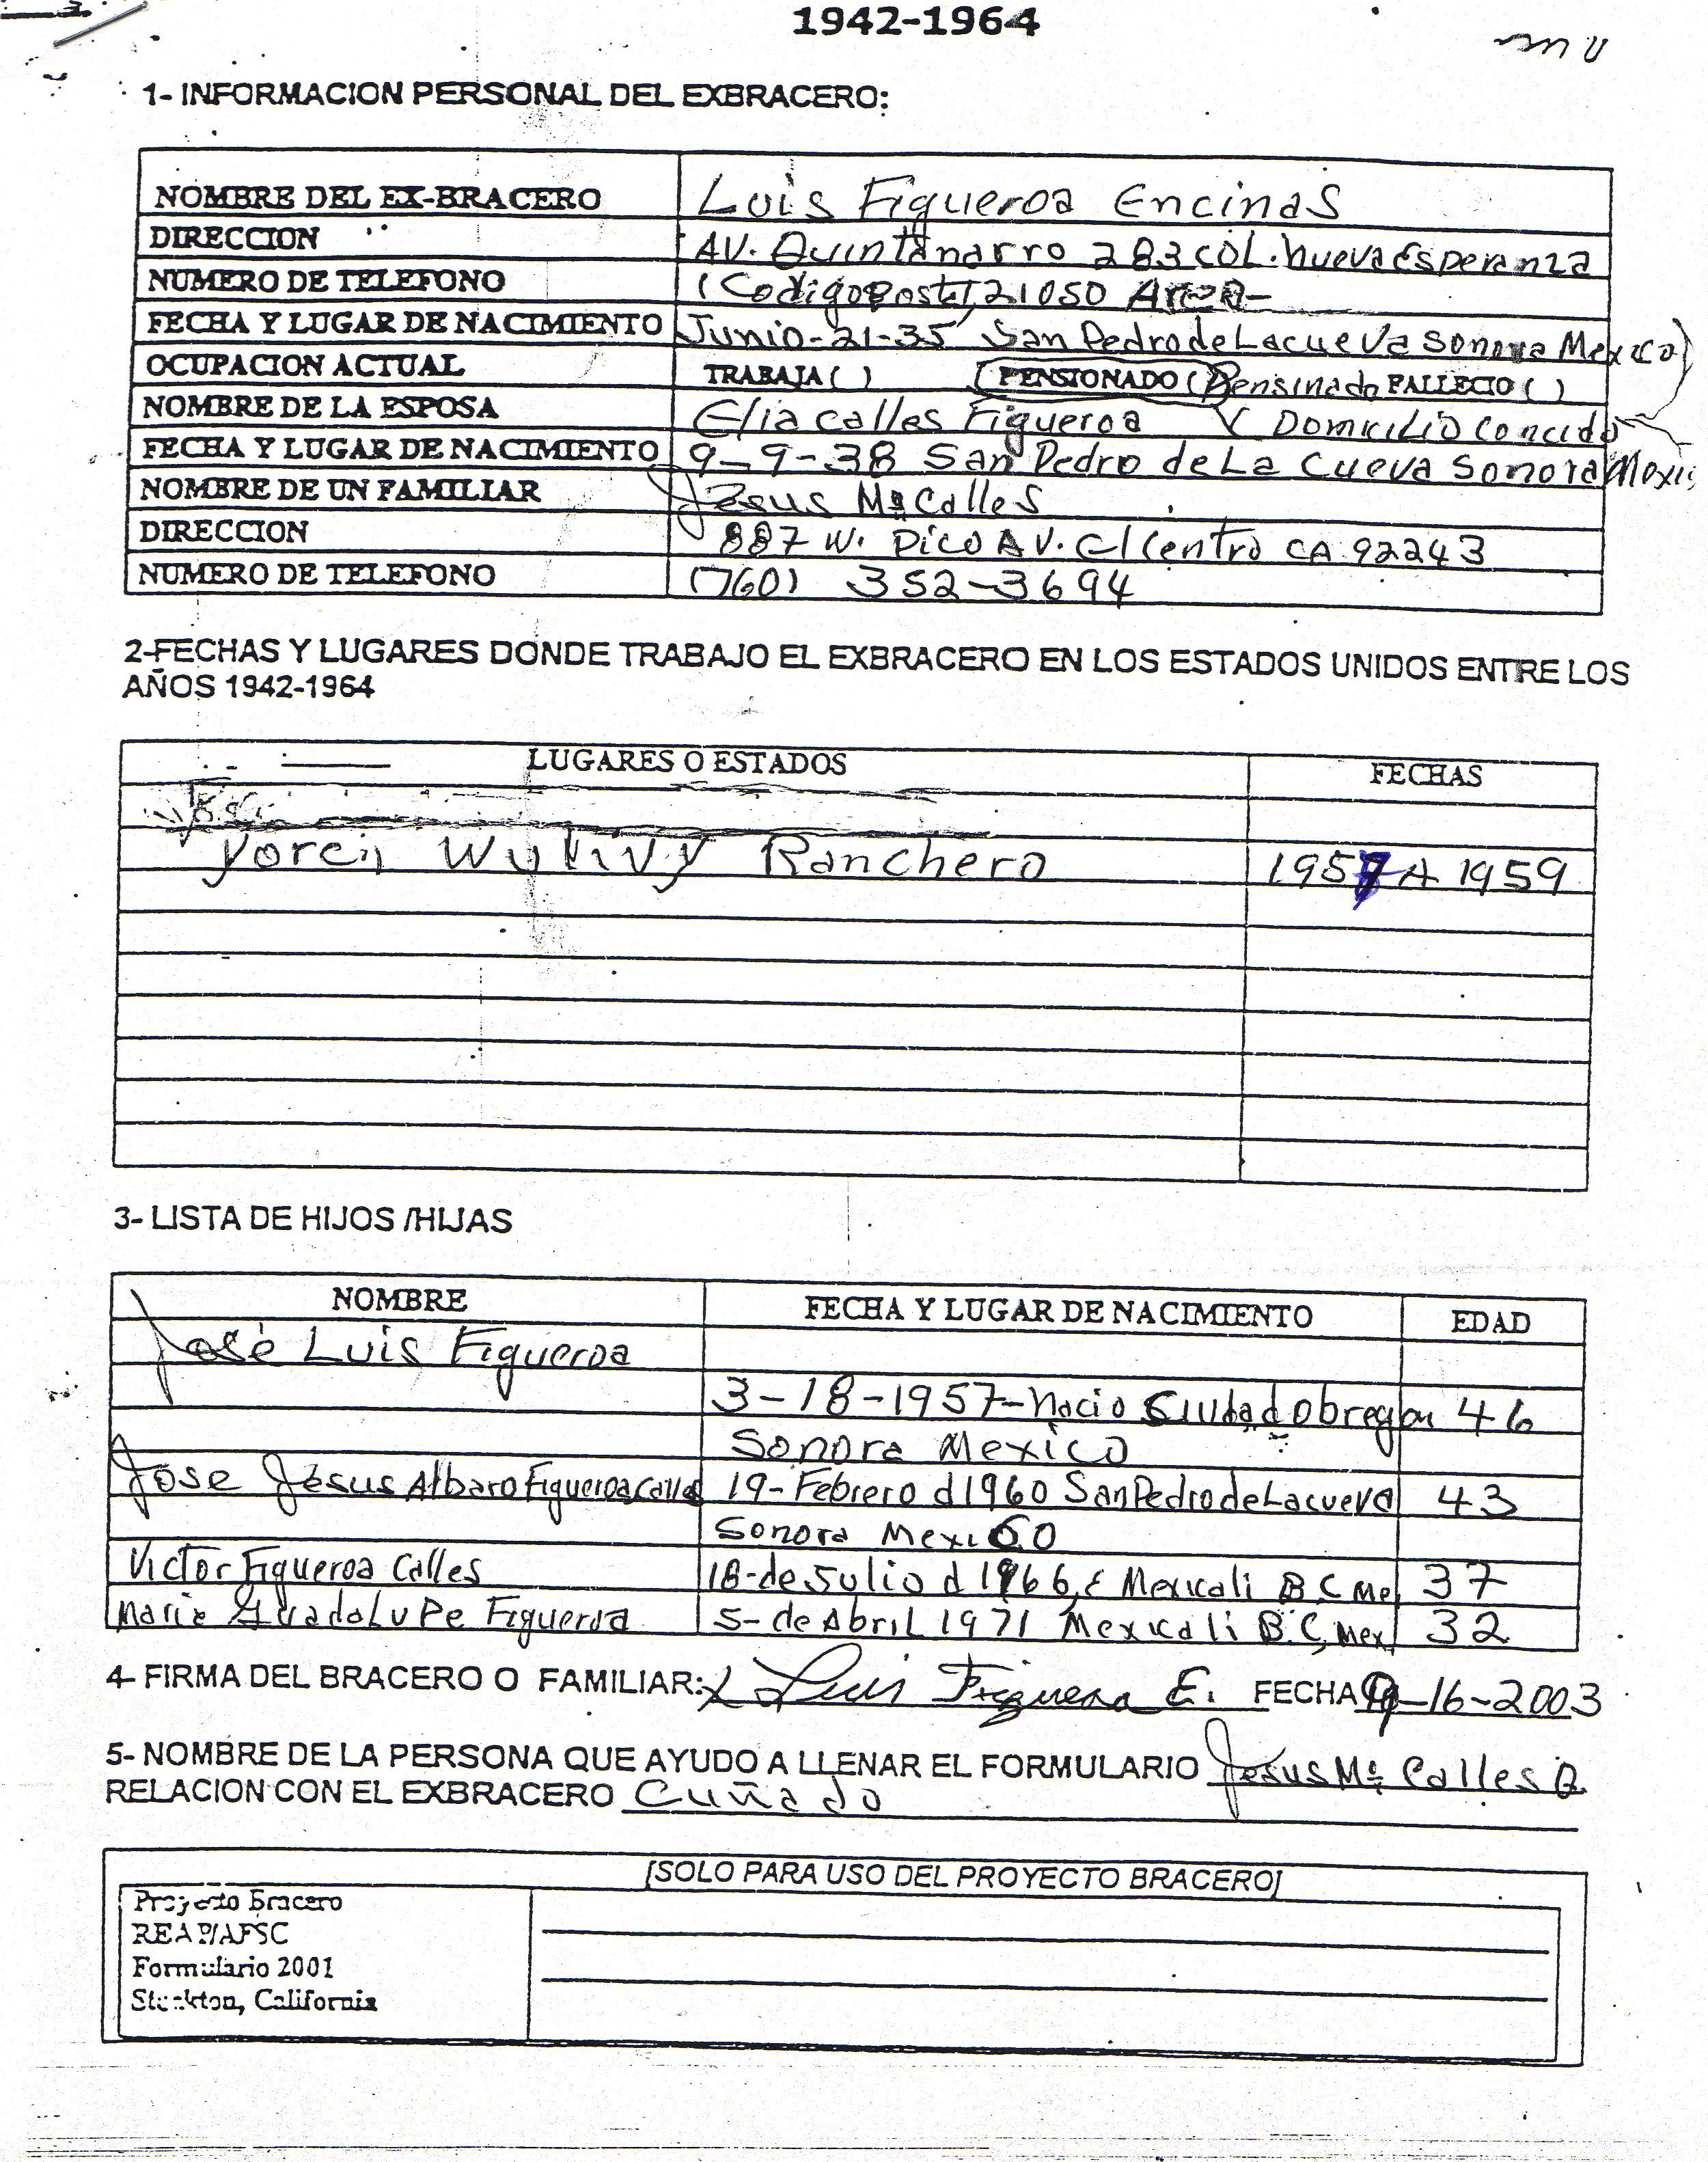 1942-1964
1- INFORMACION PERSONAL DEL EXBRACERO:
NOMBRE DEL EX-BRACERO Luis Figueroa Encinas
DIRECCION AV. Quintanarro 283 COL. nueva Esperanza
NUMERO DE TELEFONO (Codigo Postal, 21050
FECHA Y LUGAR DE NACIMIENTO Junio-21-35 San Pedro de La cueva Sonora Mexico)
OCUPACION ACTUAL TRABAJA ( ) PENSIONADO ( Pensinado FALLECIO ( )
NOMBRE DE LA ESPOSA Elia calles Figueroa Y Domicilio Concido
FECHA Y LUGAR DE NACIMIENTO 9-9-38 San Pedro de La Cueva Sonora Mexic
NOMBRE DE UN FAMILIAR Jesus Ma Calles
DIRECCION 887 W. Pico AV. El Centro CA 92243
NUMERO DE TELEFONO (760) 352-3694
2-FECHAS Y LUGARES DONDE TRABAJO EL EXBRACERO EN LOS ESTADOS UNIDOS ENTRE LOS
AÑOS 1942-1964
LUGARES O ESTADOS FECHAS
Ranchero 1957 A 1959
3- LISTA DE HIJOS /HIJAS
NOMBRE FECHA Y LUGAR DE NACIMIENTO EDAD
José Luis Figueroa
3-18-1957-Nacio Ciudad Obregon 46
Sonora Mexico
Jose Jesus Albaro Figueroa Calles 19-Febrero d 1960 San Pedro de La cueva 43
Sonora Mexico
Victor Figueroa Calles 18-de Julio d 1966, E Mexicali B C Me, 37
Maria Guadalupe Figueroa 5-de Abril 1971 Mexicali B.C, Mex, 32
4- FIRMA DEL BRACERO O FAMILIAR: X Luis Figueroa E. FECHA 9-16-2003
5- NOMBRE DE LA PERSONA QUE AYUDO A LLENAR EL FORMULARIO Jesus Ma Calles Q.
RELACION CON EL EXBRACERO Cuñado
[SOLO PARA USO DEL PROYECTO BRACERO]
Proyecto Bracero
REAP/AFSC
Formulario 2001
Stockton, California